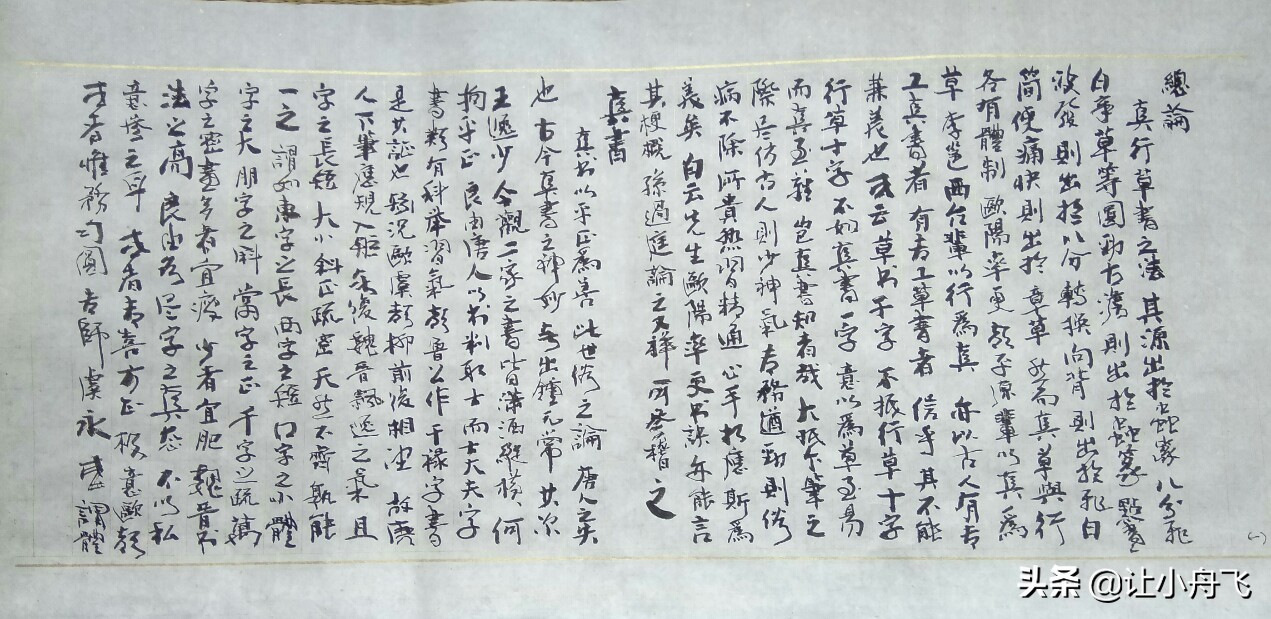 (一)
總論
真行草書之法其源出於蟲篆八分飛
白章草等圓勁古澹則出於蟲篆點畫
波發則出於八分轉換向背則出於飛白
簡便痛快則出於章草然而真草與行
各有體制歐陽率更顏平原輩以真爲
草李邕西台輩以行爲真亦以古人有专
工真書者有专工草書者信乎其不能
兼美也或云草书千字不抵行草十字
行草十字不如真書一字意以爲草至易
而真至難豈真書知者哉大抵下筆之
際尽仿古人則少神氣专務遒勁則俗
病不除所貴熟習精通心手相應斯爲
美矣白云先生歐陽率更书訣亦能言
其梗概孫過庭論之又詳可參稽之
真書
真书以平正爲善此世俗之論唐人之失
也古今真書之神妙無出鍾元常其次
王逸少今觀二家之書皆瀟洒縱橫何
拘乎正良由唐人以书判取士而士大夫字
書類有科舉習氣顏魯公作干祿字書
是其證也矧況歐虞顏柳前後相望故唐
人下筆應規入矩無復魏晉飄逸之氣且
字之長短大小斜正疏密天然不齊孰能
一之謂如東字之長西字之短口字之小體
字之大朋字之斜當字之正千字之疏萬
字之密畫多者宜瘦少者宜肥魏晉书
法之高良由各尽字之真态不以私
意參之耳或者专喜方正极意歐顏
或者惟務勻圓专師虞永或謂體
头条 @让小舟飞